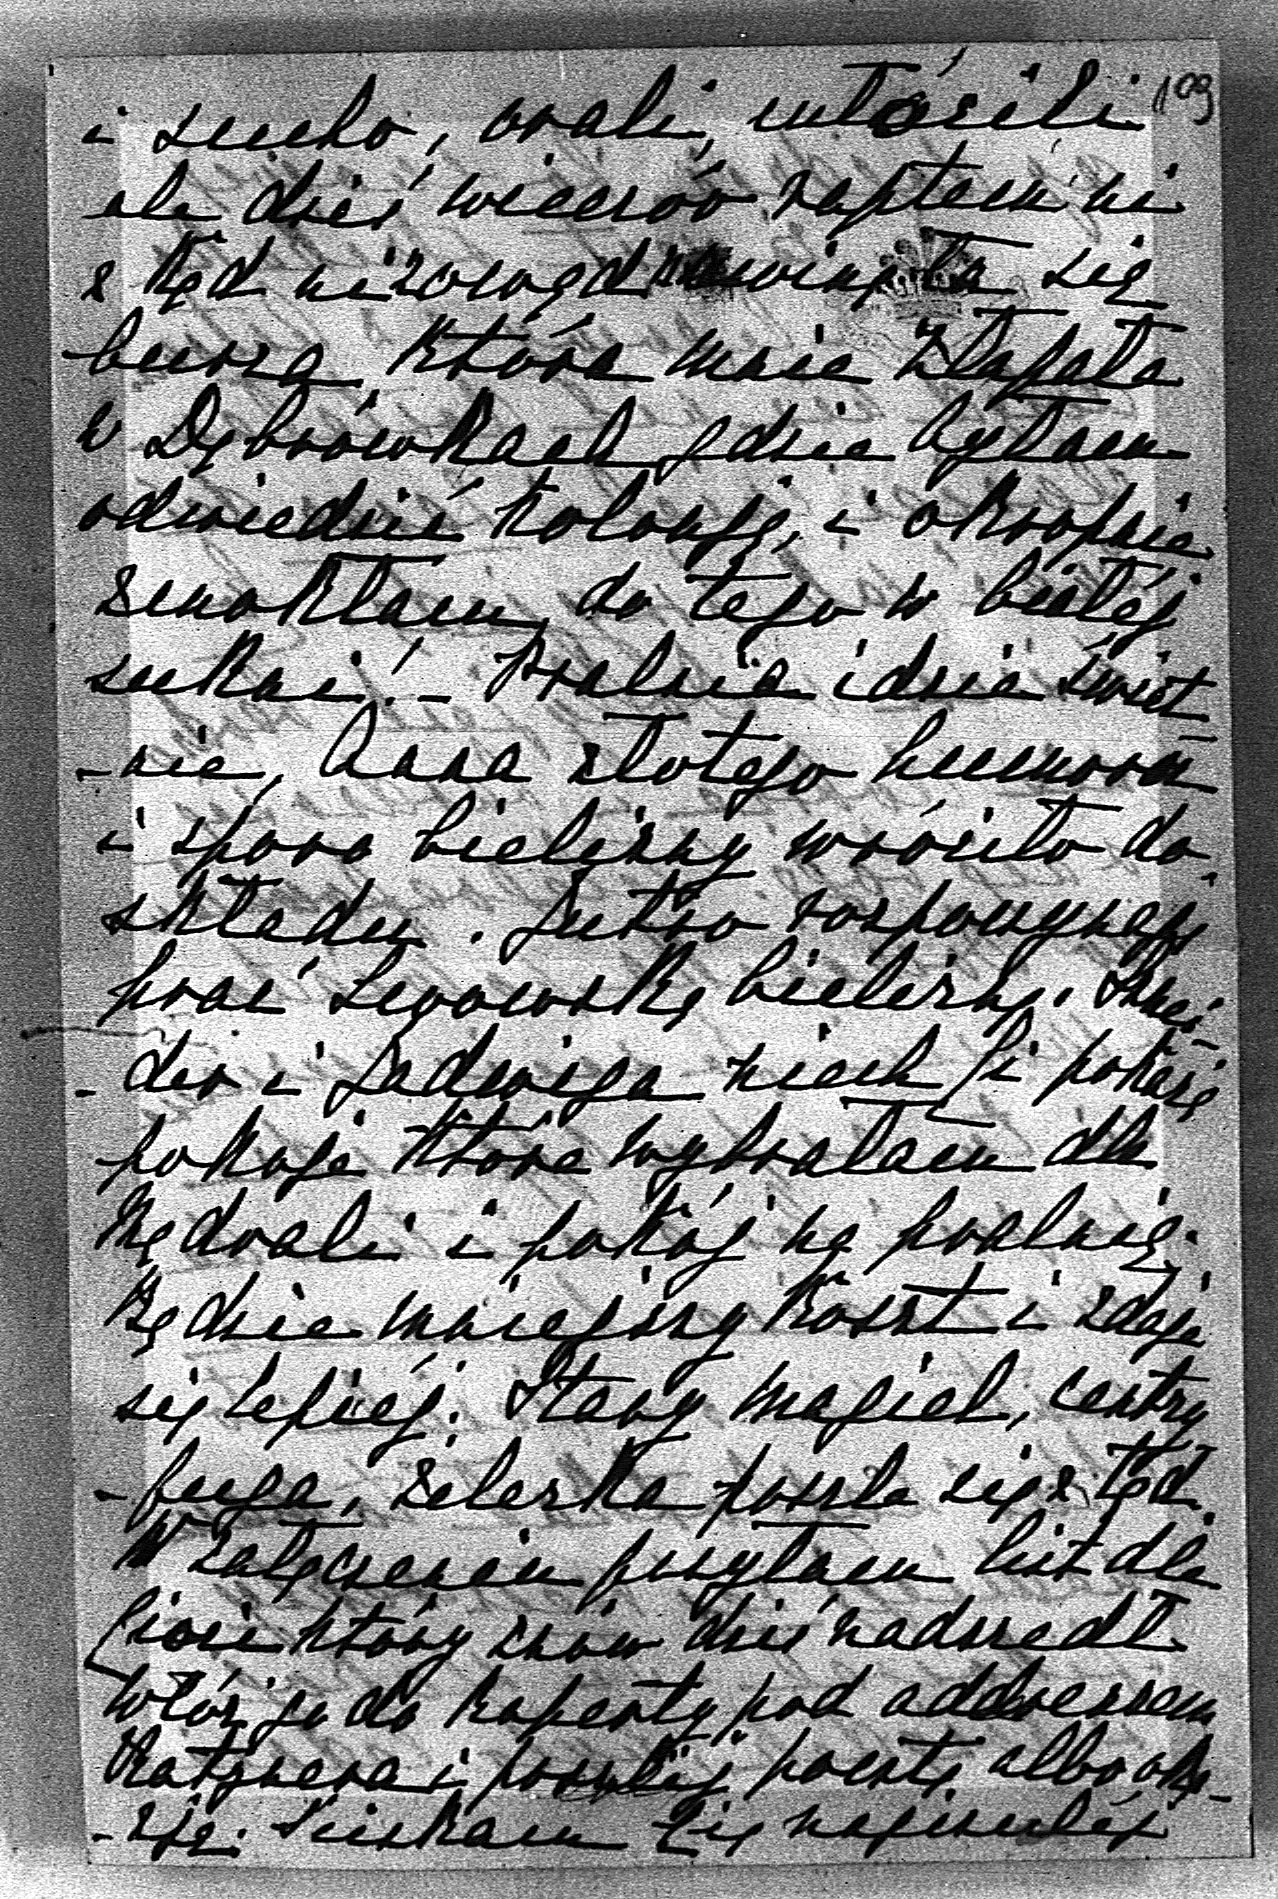 109
i sucho, orali, włóczili
ale dziś wieczór raptem ni
z kąd ni zowąd zawinęła się
burza, która mnie złapała
w Dębrówkach gdzie byłam
odwiedzić kolonję, i okropnie
zmokłam, do tego w białej
sukni! – Pralnia idzie świet
-nie, Anna złotego humoru
i sporo bielizny wróciło do
składu. Jutro rozpoczynają
prać bieliznę. Sznej-
-der i Jadwiga niech Ci pokażę
pokoje które wybrałam dla
Kędrali i pokój na pralnię.
Będzie mniejszy koszt i zdaje
się lepiej. Stary magiel, centry
-fuga, żelazka poszle się z tąd.
W załączeniu posyłam list dla
Cioci który znów dziś nadszedł
włóż go do koperty pod addressem
Ratznera i poszlij pocztą albo oka-
-zją. Ściskam Cię najczulej